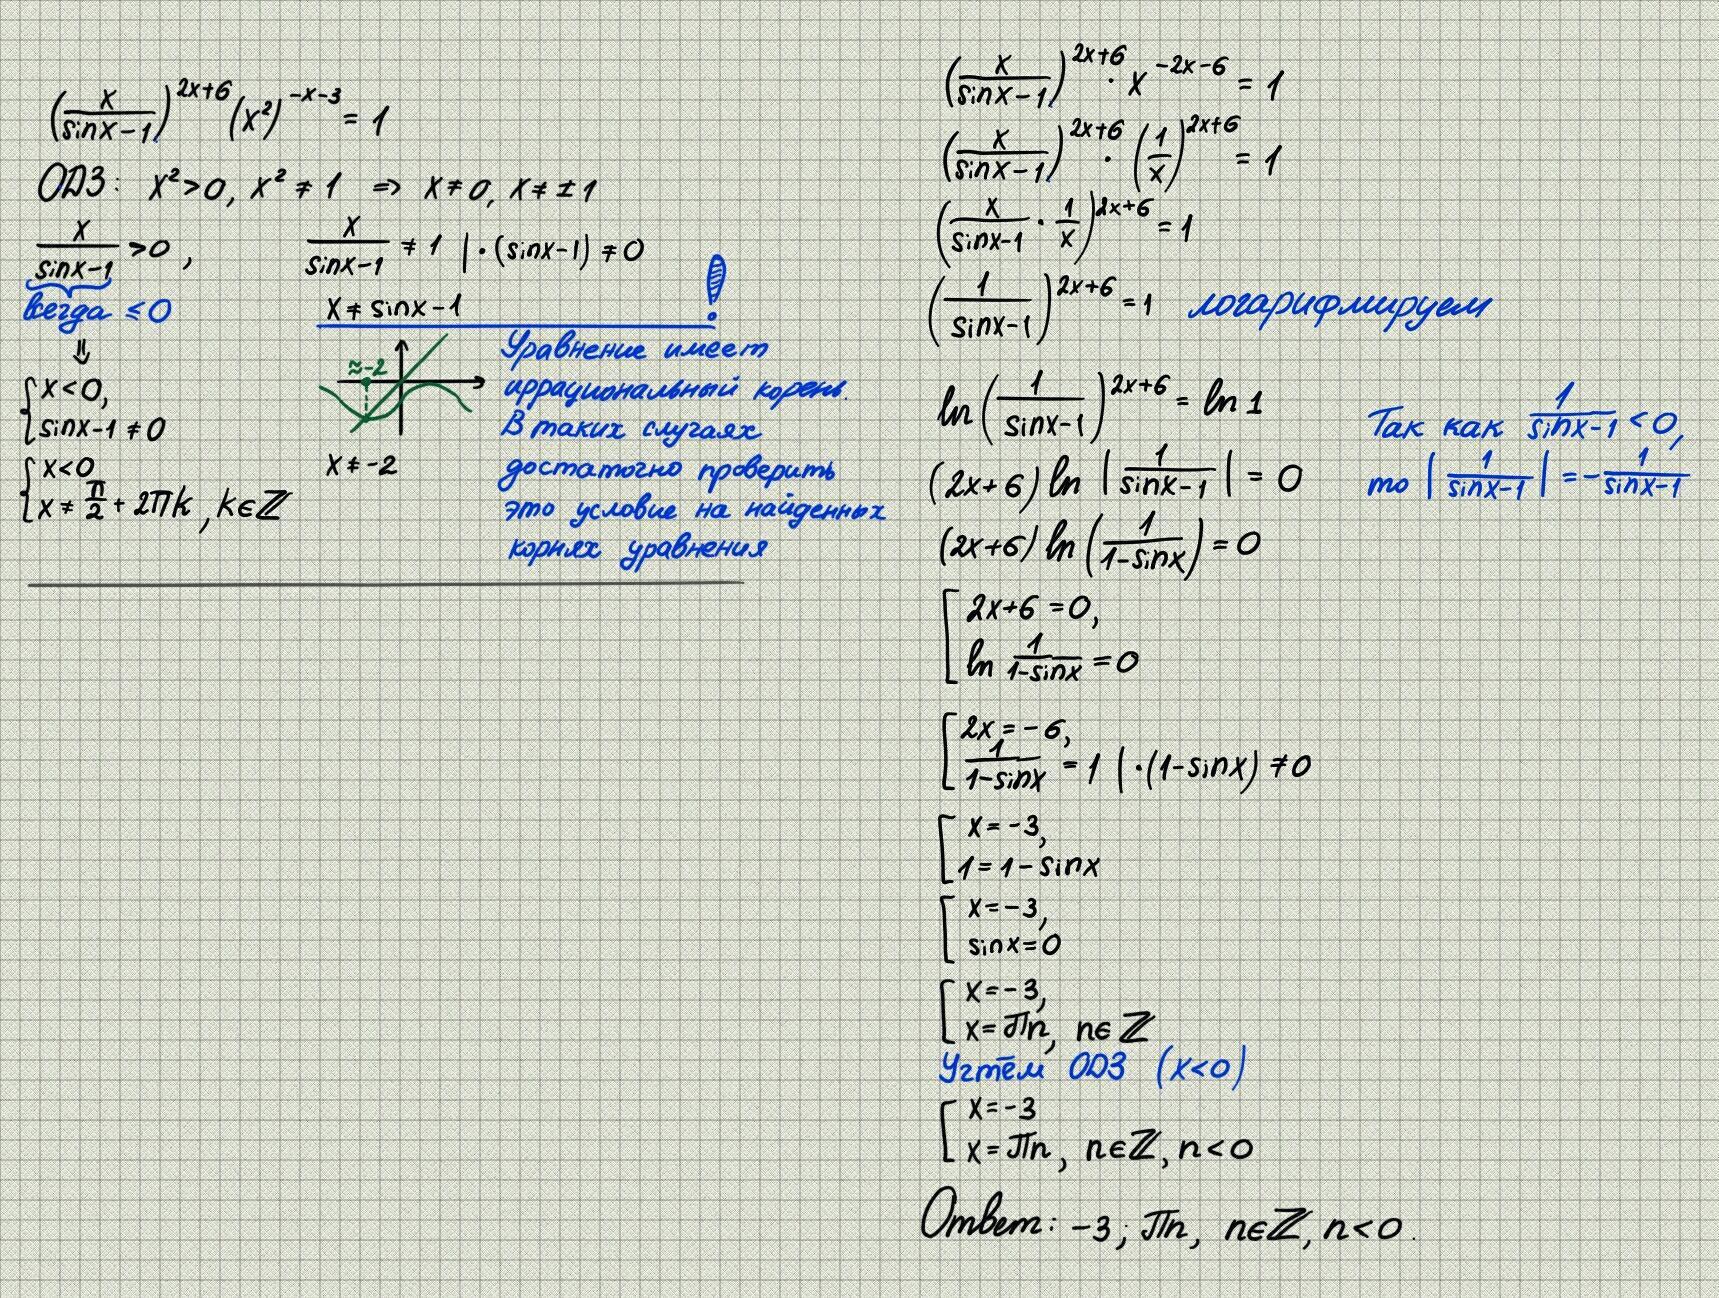 (x/(sinx-1))^(2x+6) (x²)^(-x-3) = 1
ОДЗ: x²>0, x² ≠ 1 => x≠0, x≠ ±1
x/(sinx-1) >0, x/(sinx-1) ≠ 1 | ·(sinx-1) ≠0
всегда ≤0
x ≠ sinx-1
!
⇓
{ x<0,
sinx-1 ≠0
{ x<0
x ≠ π/2 + 2πk, k∈ℤ
≈-2
x ≠ -2
Уравнение имеет
иррациональный корень.
В таких случаях
достаточно проверить
это условие на найденных
корнях уравнения
(x/(sinx-1))^(2x+6) · x^(-2x-6) = 1
(x/(sinx-1))^(2x+6) · (1/x)^(2x+6) = 1
(x/(sinx-1) · 1/x)^(2x+6) = 1
(1/(sinx-1))^(2x+6) = 1 логарифмируем
ln(1/(sinx-1))^(2x+6) = ln 1
(2x+6) ln |1/(sinx-1)| = 0
Так как 1/(sinx-1) <0,
то |1/(sinx-1)| = -1/(sinx-1)
(2x+6) ln (1/(1-sinx)) = 0
[ 2x+6 =0,
ln 1/(1-sinx) = 0
[ 2x = -6,
1/(1-sinx) = 1 | ·(1-sinx) ≠0
[ x = -3,
1 = 1 - sinx
[ x = -3,
sinx = 0
[ x = -3,
x = πn, n∈ℤ
Учтём ОДЗ (x<0)
[ x = -3
x = πn, n∈ℤ, n<0
Ответ: -3; πn, n∈ℤ, n<0.